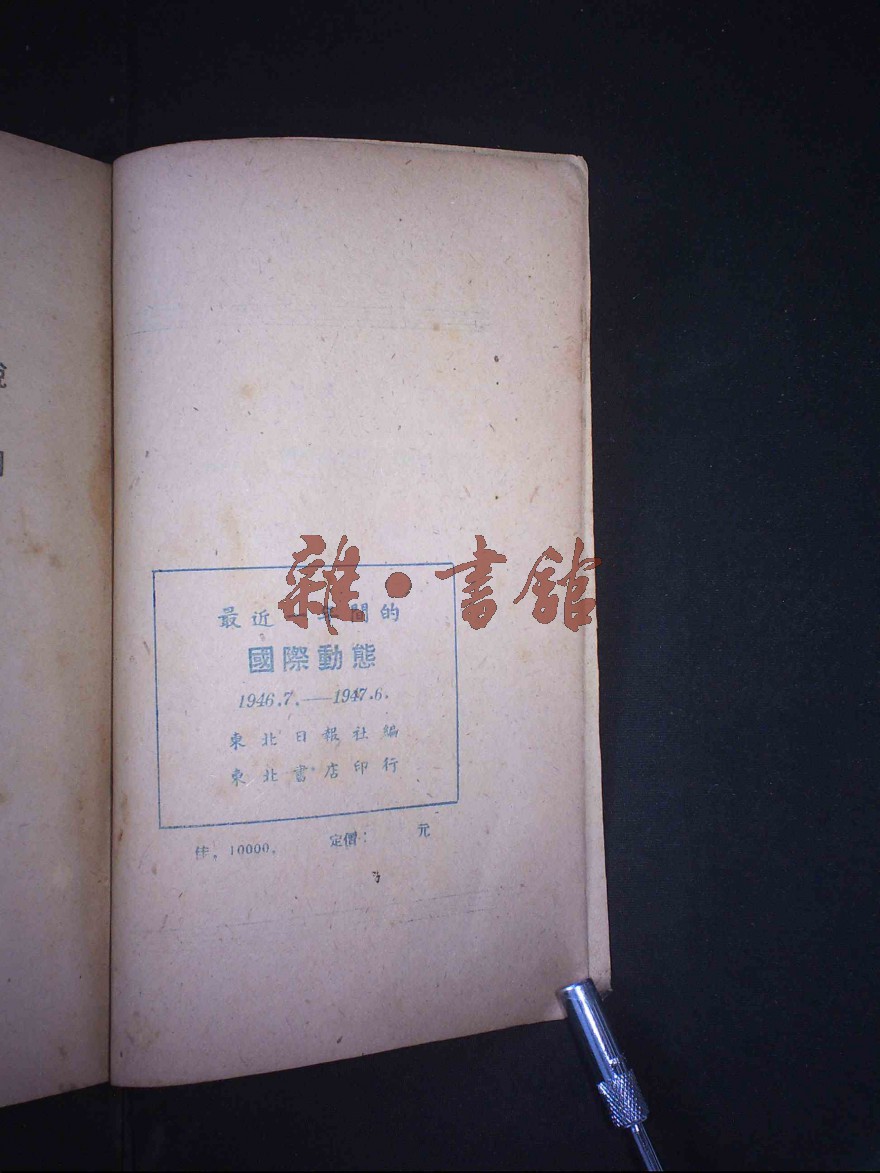 雜·書館
最近一年間的
國際動態
1946.7.——1947.6.
東北日報社編
東北書店印行
佳。10000. 定價： 元